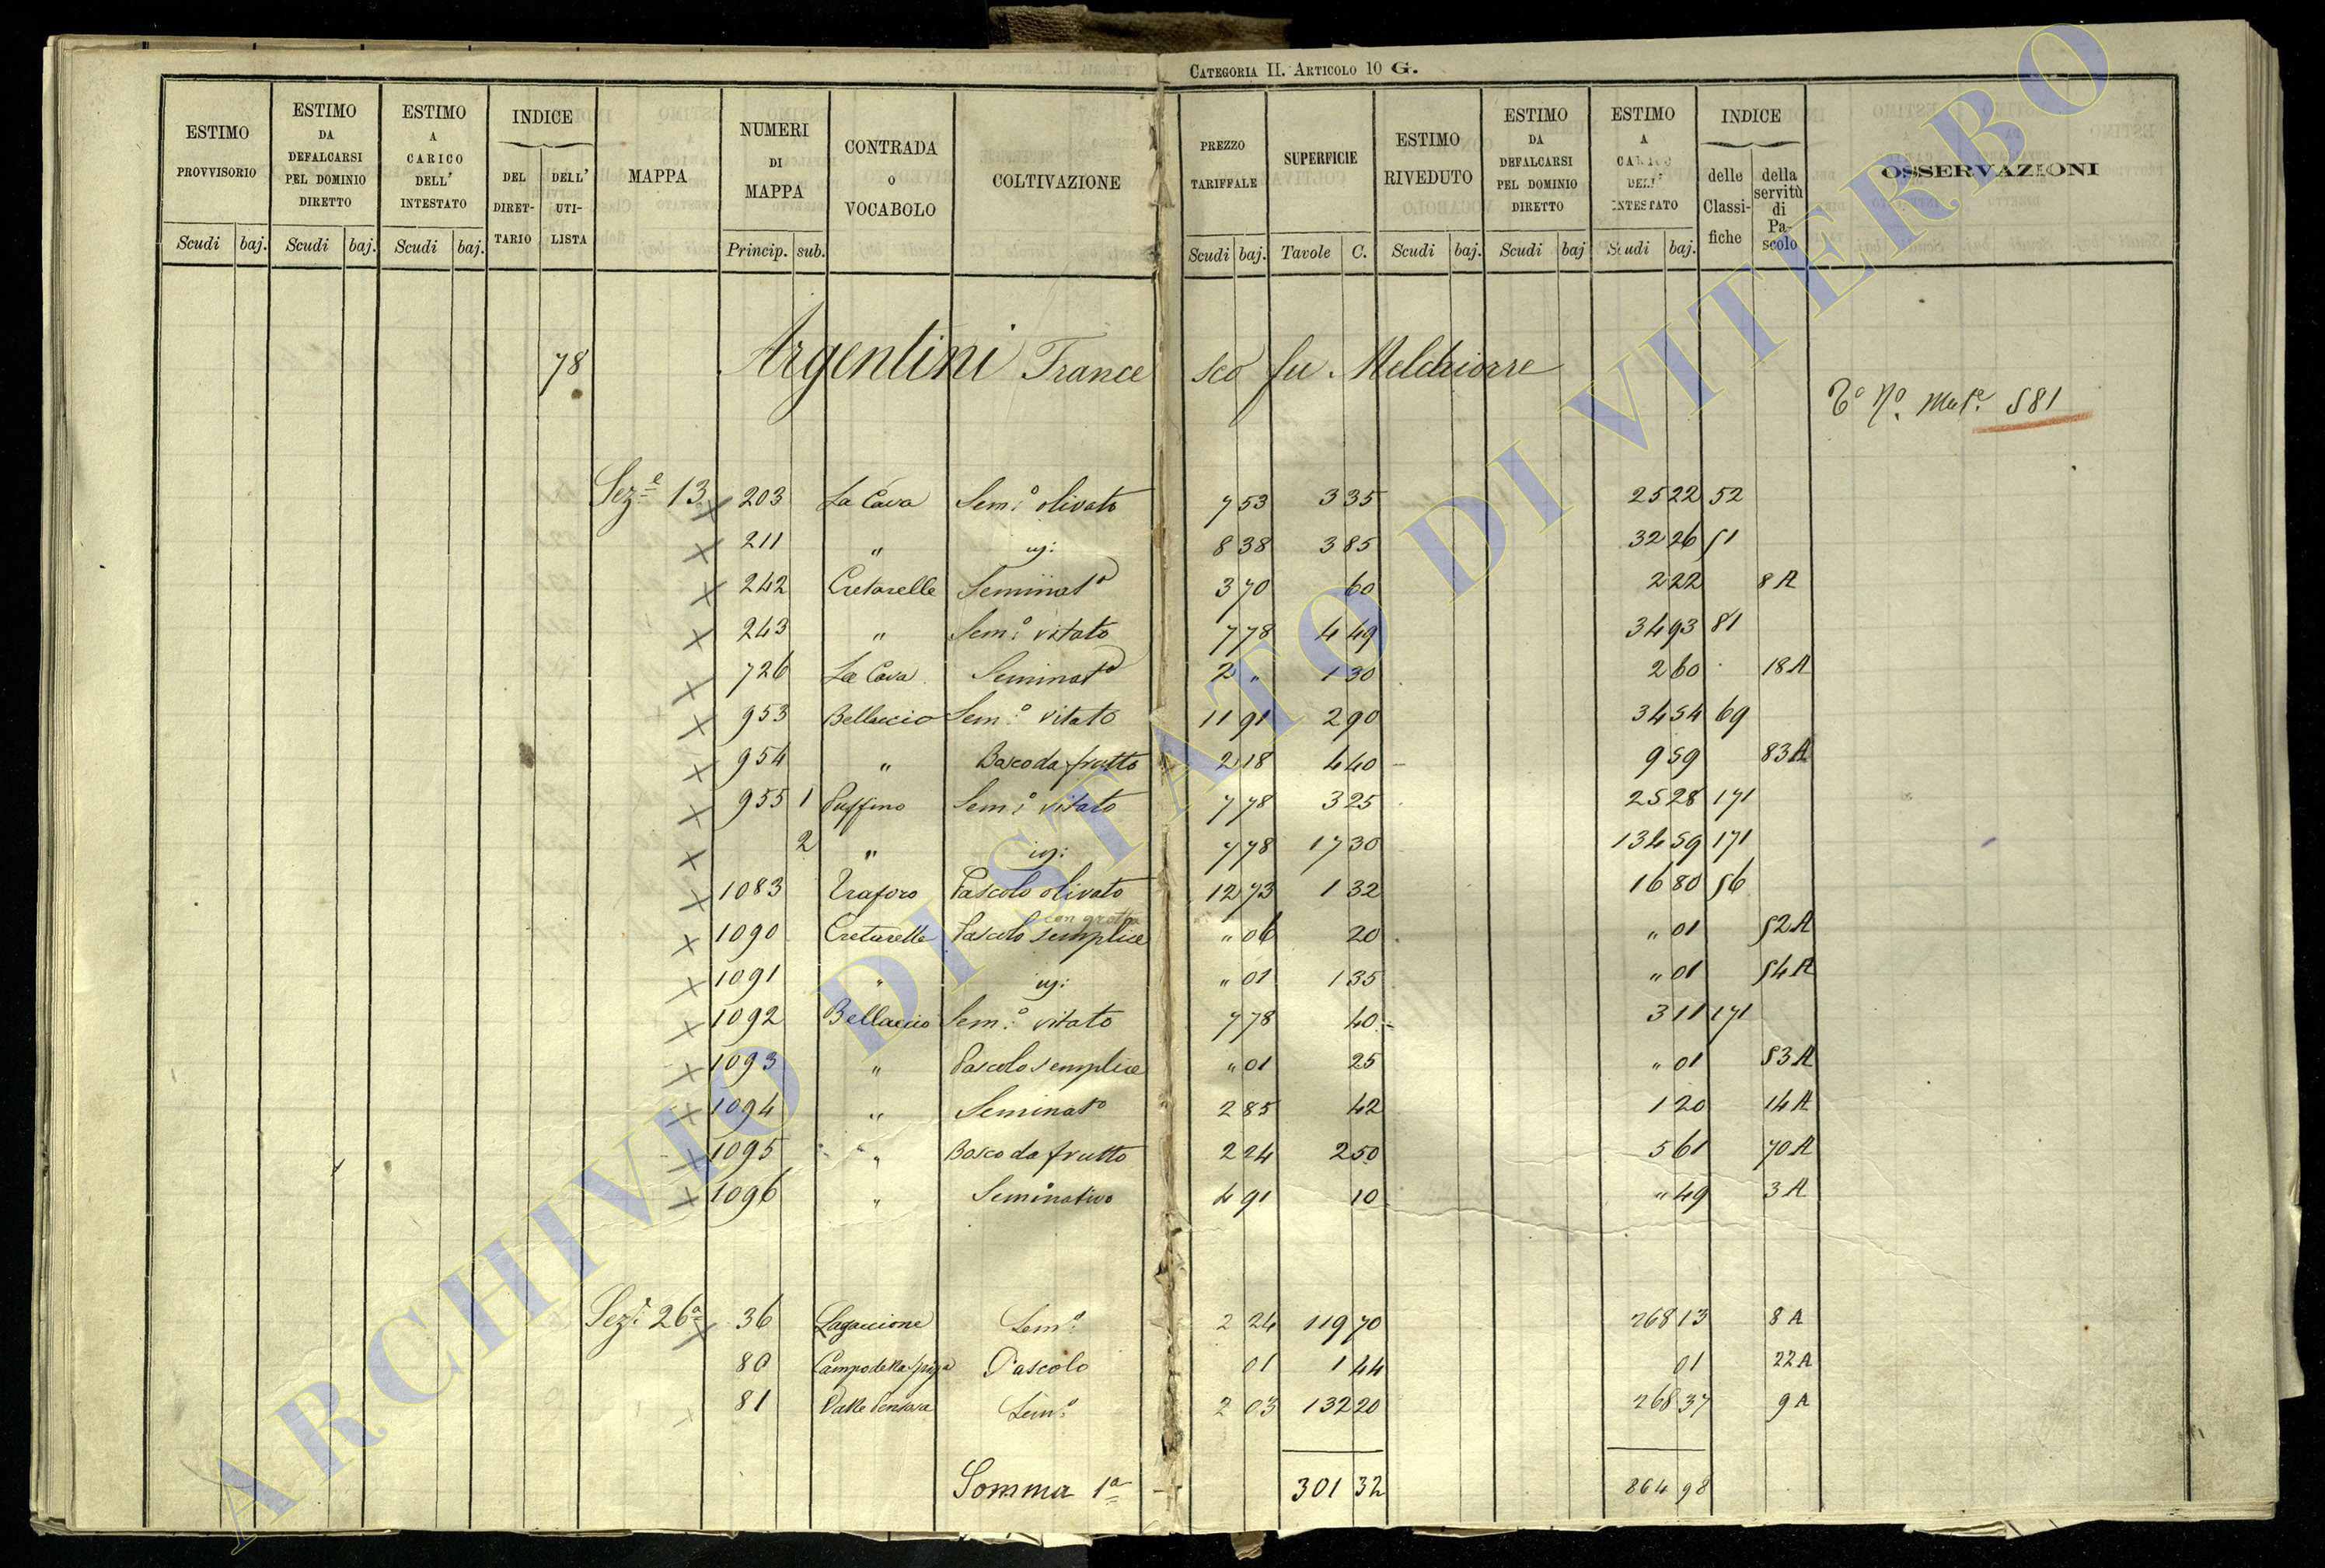 CATEGORIA II. ARTICOLO 10 G.
ESTIMO PROVVISORIO Scudi baj.
ESTIMO DA DEFALCARSI PEL DOMINIO DIRETTO Scudi baj.
ESTIMO A CARICO DELL' INTESTATO Scudi baj.
INDICE DEL DIRETTARIO DELL' UTILISTA
MAPPA
NUMERI DI MAPPA Princip. sub.
CONTRADA O VOCABOLO
COLTIVAZIONE
PREZZO TARIFFALE Scudi baj.
SUPERFICIE Tavole C.
ESTIMO RIVEDUTO Scudi baj.
ESTIMO DA DEFALCARSI PEL DOMINIO DIRETTO Scudi baj
ESTIMO A CARICO DELL' INTESTATO Scudi baj.
INDICE delle Classifiche della servitù di Pascolo
OSSERVAZIONI
78 Argentini Francesco fu Melchiorre
581
Sez.e 13 X 203 La Cava Sem.o olivato 7 53 3 35 25 22 52
X 211 " 8 38 3 85 32 26 51
X 242 Cretarelle Seminato 3 70 60 2 22 8 A
X 243 " Sem.o vitato 7 78 4 49 34 93 81
X 726 La Cava Seminato 2 " 1 30 2 60 18 A
X 953 Bellaccio Sem.o vitato 11 91 2 90 34 54 69
X 954 " Bosco da frutto 2 18 4 40 9 59 83 A
X 955 1 Puffino Sem.o vitato 7 78 3 25 25 28 171
X 2 " 7 78 17 30 134 59 171
X 1083 Traforo Pascolo olivato 12 73 1 32 16 80 56
con grotta
X 1090 Cretarelle Pascolo semplice " 06 20 " 01 52 A
X 1091 " " 01 1 35 " 01 54 A
X 1092 Bellaccio Sem.o vitato 7 78 40 3 11 171
X 1093 " Pascolo semplice " 01 25 " 01 53 A
X 1094 " Seminato 2 85 42 1 20 14 A
X 1095 " Bosco da frutto 2 24 2 50 5 61 70 A
X 1096 " Seminativo 4 91 10 " 49 3 A
Sez. 26a X 36 Lagaccione Sem.o 2 24 119 70 268 13 8 A
80 Campo della Pascolo 01 1 44 01 22 A
81 Valle Sem.o 2 03 132 20 268 37 9 A
Somma 1a 301 32 864 98
ARCHIVIO DI STATO DI VITERBO